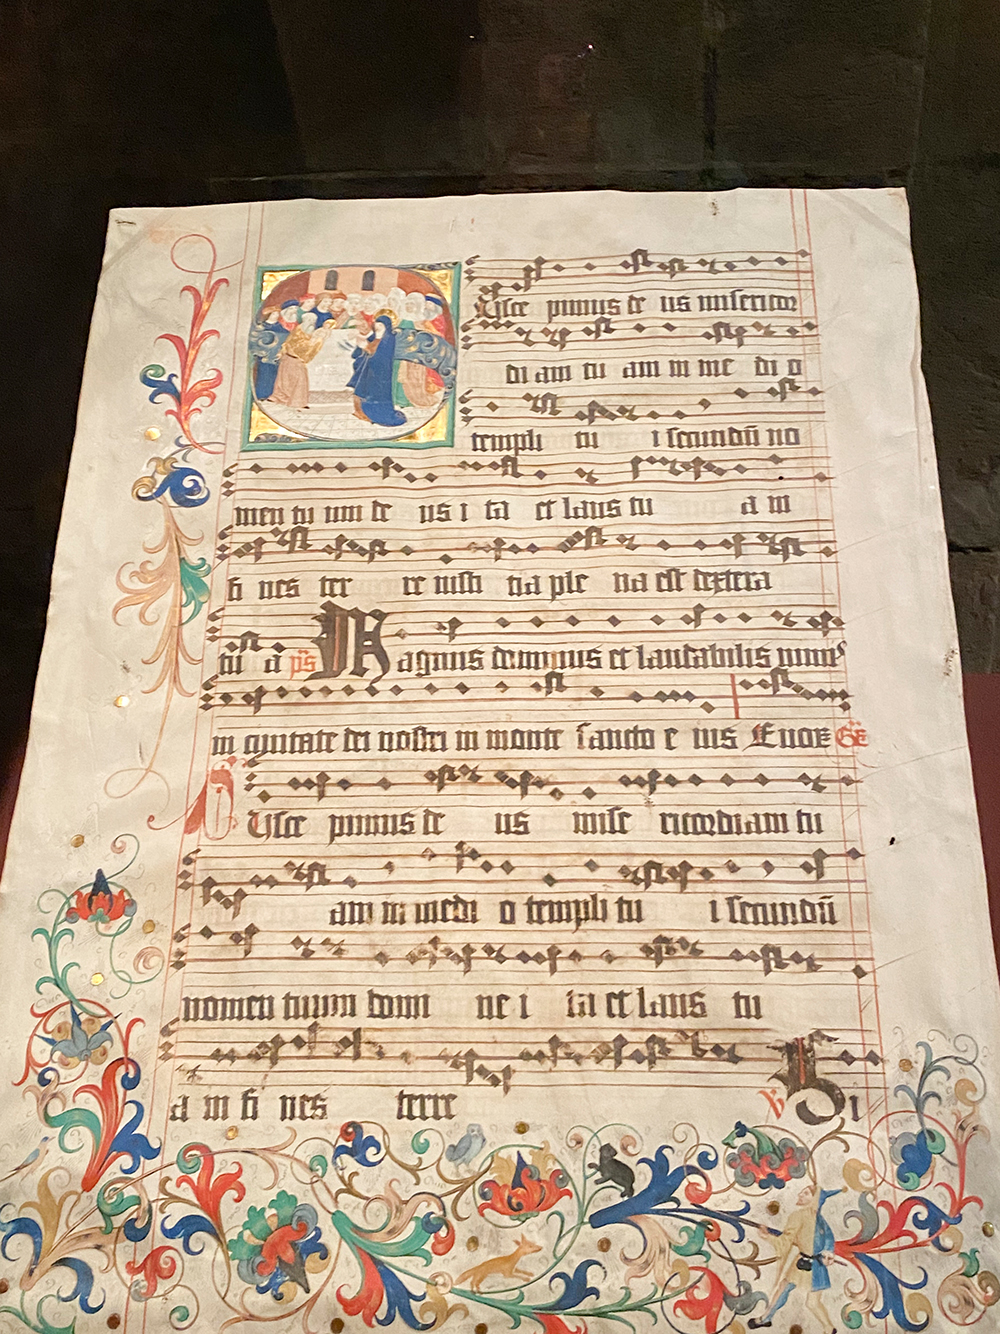 Usce pimus de us misericor
di am tu am in me di o
templi tu i secundū no
men tu um de us i ta et laus tu a in
fi nes ter re iusti tia ple na est dextera
tu a ps̄ Magnus dominus et laudabilis nimis
in cyuitate dei nostri in monte sancto e ius Euoe
SUsce pimus de us mise ricordiam tu
am in medi o templi tu i secundū
nomen tuum domi ne i ta et laus tu
a in fi nes terre